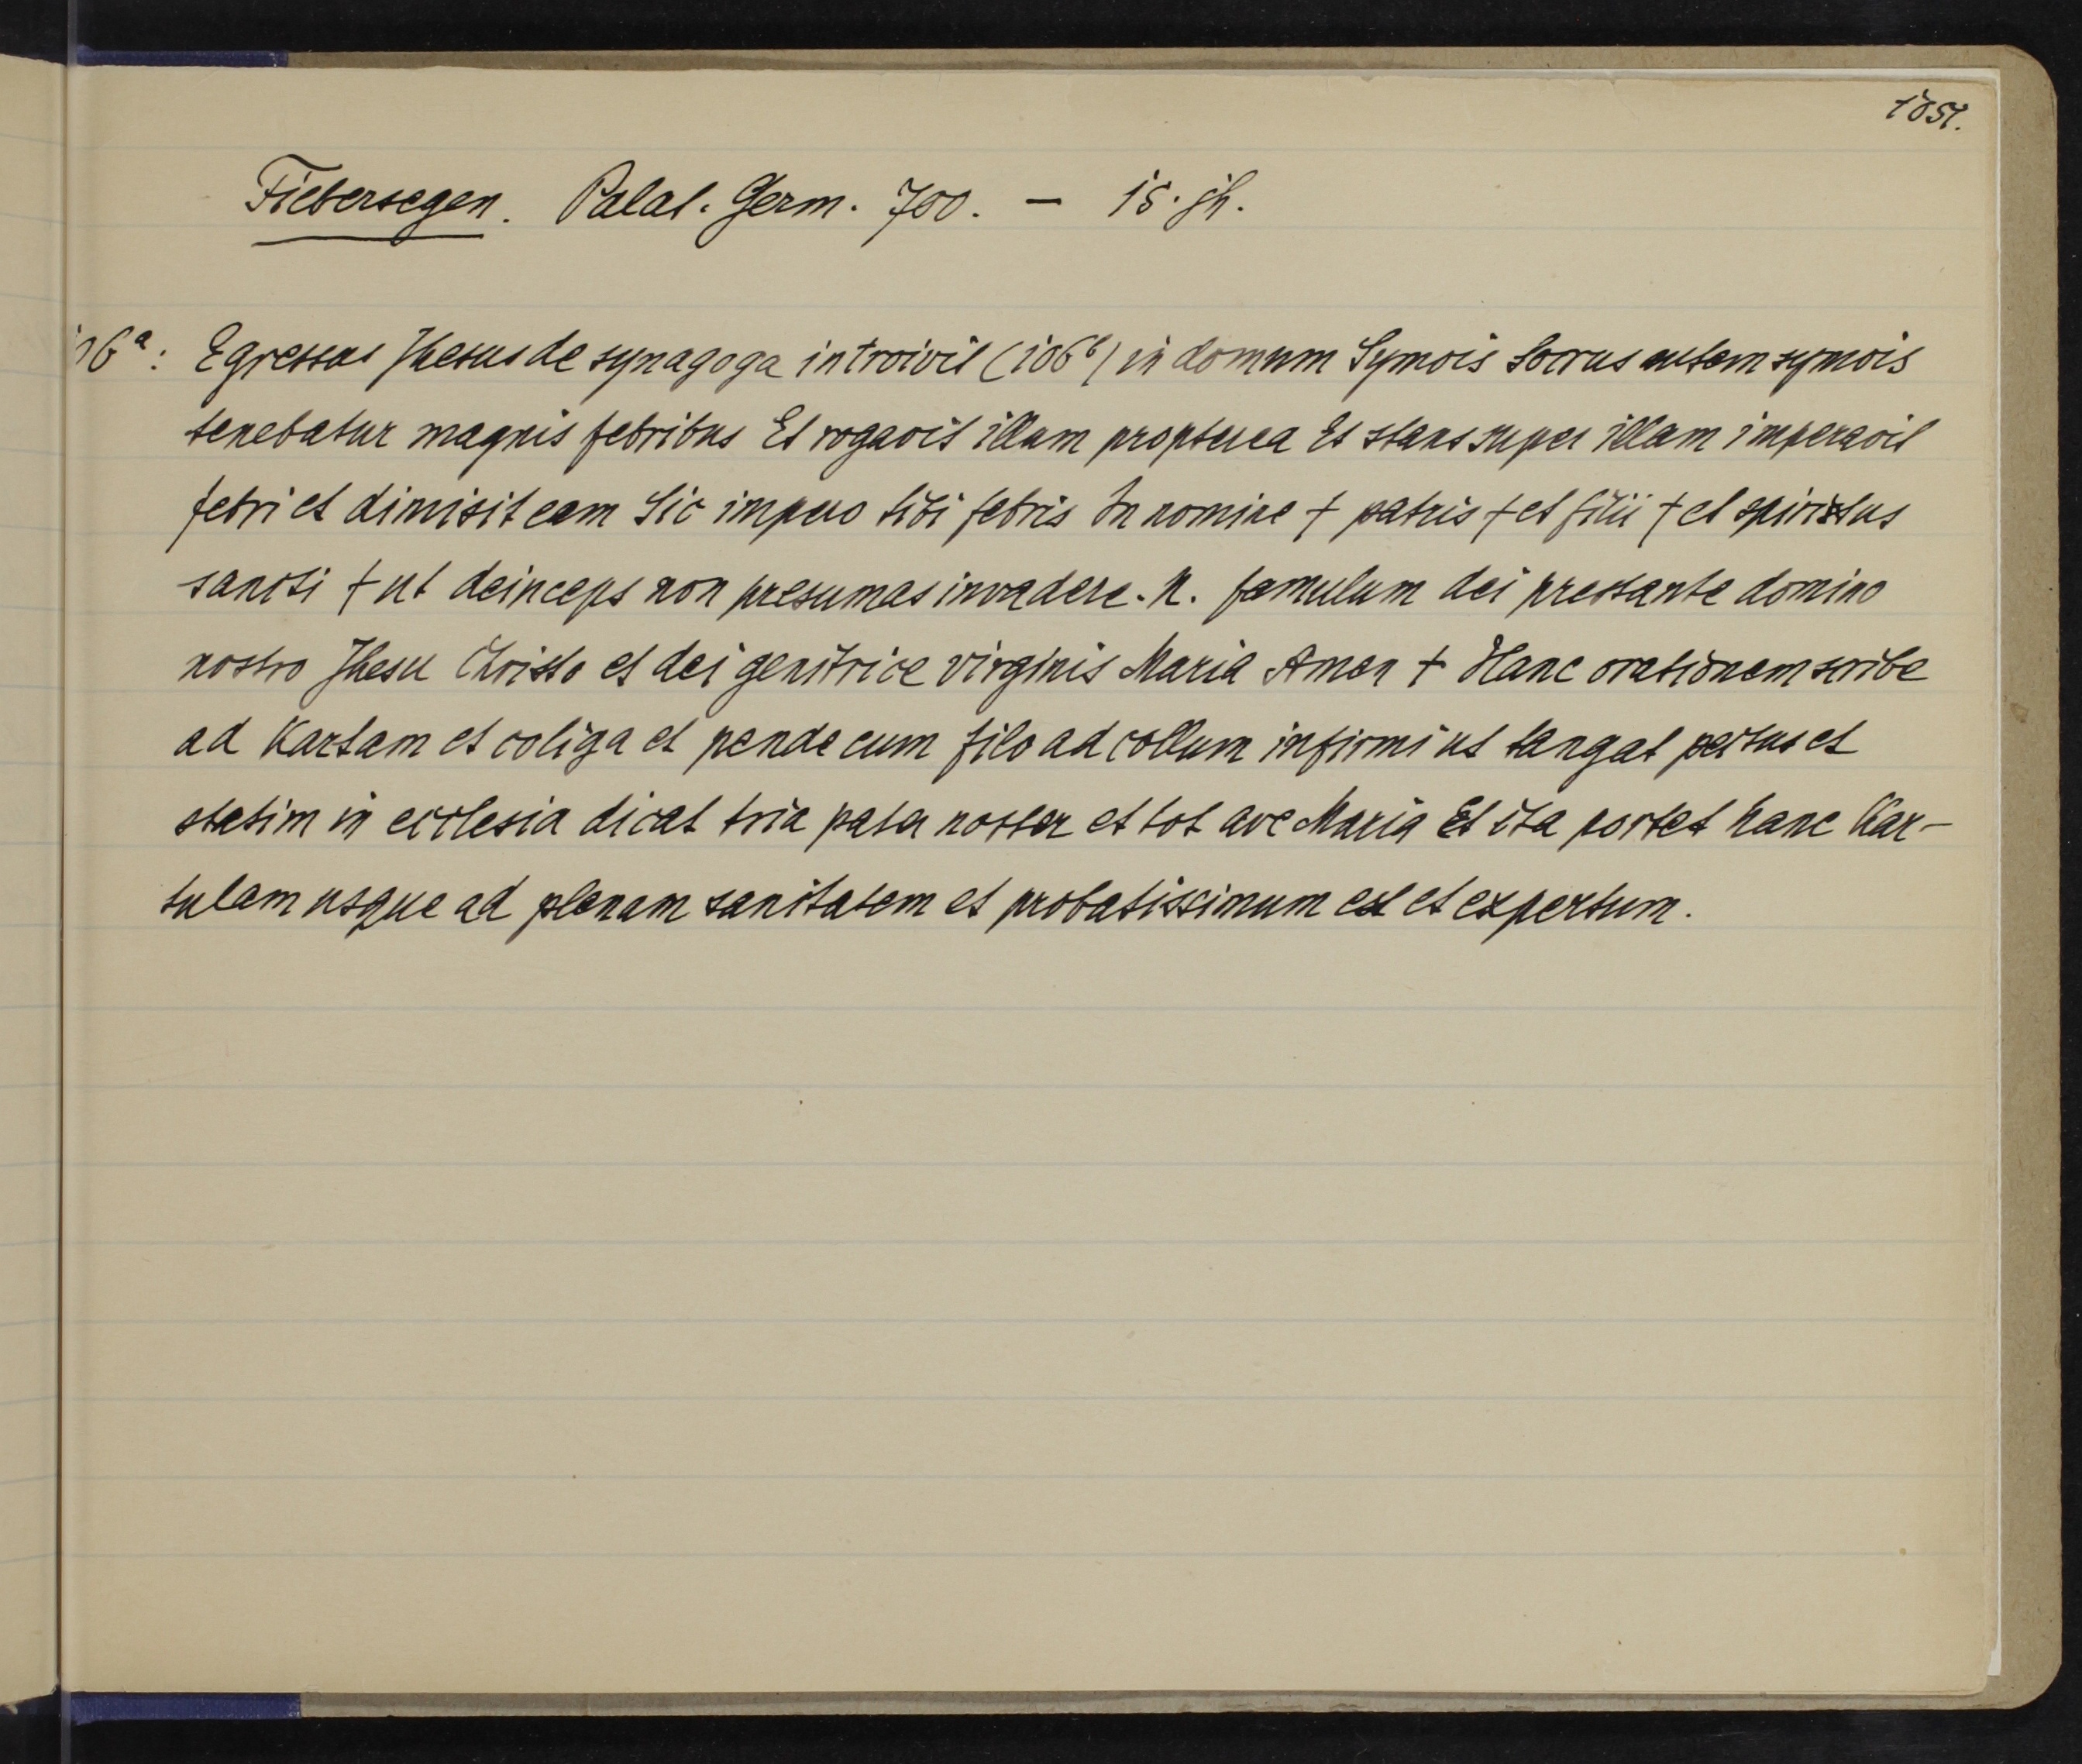 1051.
Fiebersegen. Palat. Germ. 700. – 15. jh.
106a: Egressus Jhesus de synagoga introivit (106b) in domum Symois Socrus autem symois
tenebatur magnis febribus Et rogavit illum propterea Et stans super illam imperavit
febri et dimisit eam Sic impero tibi febris In nomine † patris † et filii † et spiritus
sancti † ut deinceps non presumas invadere. N. famulum dei prestante domino
nostro Jhesu Christo et dei genitrice virginis Maria Amen † Hanc orationem scribe
ad Kartam et coliga et pende cum filo ad collum infirmi ut tangat pectus et
statim in ecclesia dicat tria pater noster et tot ave Maria Et ita portet hanc Kar-
tulam usque ad plenam sanitatem et probatissimum est et expertum.